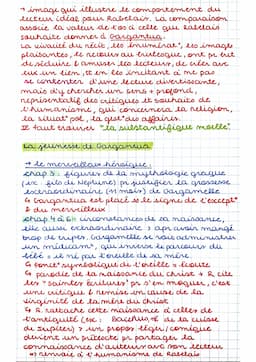 → image qui illustre le comportement du
lecteur idéal pour Rabelais. La comparaison
associe la valeur de l'os à celle que Rabelais
souhaite donner à Gargantua.
La vivacité du récit, les images
plaisantes, le recours au burlesque ont pr but
de séduire & amuser les lecteurs, de créer avec
eux un lien, tt en les incitant à ne pas
se contenter d'une lecture divertissante,
mais d'y chercher un sens + profond,
représentatif des critiques et souhaits de
l'humanisme, qui concernera la religion,
la situat° pol, la gest° des affaires.
Il faut trouver "la substantifique moelle"
La jeunesse de Gargantua
→ Le merveilleux héroïque :
chap 3 : figures de la mythologie grecque
(ex : fils de Neptune) pr justifier la grossesse
extraordinaire (11 mois) de Gargamelle
↳ Gargantua est placé ss le signe de l'except°
& du merveilleux
chap 4 à 6 : circonstances de sa naissance,
elle aussi extraordinaire : apr avoir mangé
trop de tripes Gargamelle se voit administrer
un médicam', qui inverse le parcours du
bébé = il naît par l'oreille de sa mère.
↳ symbolique de l'oreille = écoute
↳ parodie de la naissance du Christ + R. cite
les "saintes écritures" pr s'en moquer, c'est
une critique & remise en cause de la
virginité de la mère du Christ
↳ R. rattache cette naissance à celles de
l'antiquité (ex : Bacchus, né de la cuisse
de Jupiter) > un propos léger/comique
devient un prétexte pr partager la
connaissance d'auteurs avec son lecteur
⇒ renvoie à l'humanisme de Rabelais